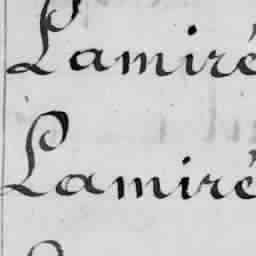 Lamiré
Lamiré